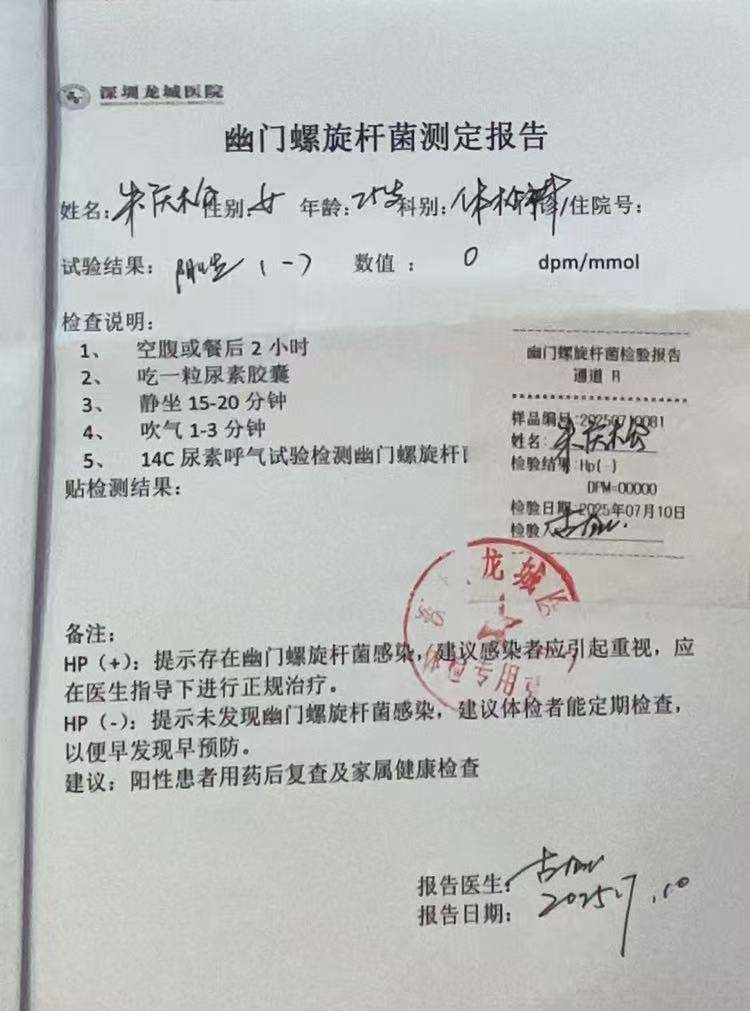 深圳龙城医院
幽门螺旋杆菌测定报告
姓名: 性别: 女 年龄: 25岁 科别: 体检 /住院号:
试验结果: 阴性 (-) 数值 : 0 dpm/mmol
检查说明:
1、 空腹或餐后 2 小时
2、 吃一粒尿素胶囊
3、 静坐 15-20 分钟
4、 吹气 1-3 分钟
5、 14C 尿素呼气试验检测幽门螺旋杆
贴检测结果:
幽门螺旋杆菌检验报告
通道 A
样品编号:20250710081
姓名:
检验结果:Hp( )
DPM=00000
检验日期:2025年07月10日
检验
龙城医
体检专用
备注:
HP(+): 提示存在幽门螺旋杆菌感染, 建议感染者应引起重视, 应
在医生指导下进行正规治疗。
HP(-): 提示未发现幽门螺旋杆菌感染, 建议体检者能定期检查,
以便早发现早预防。
建议: 阳性患者用药后复查及家属健康检查
报告医生:
报告日期: 2025.7.10